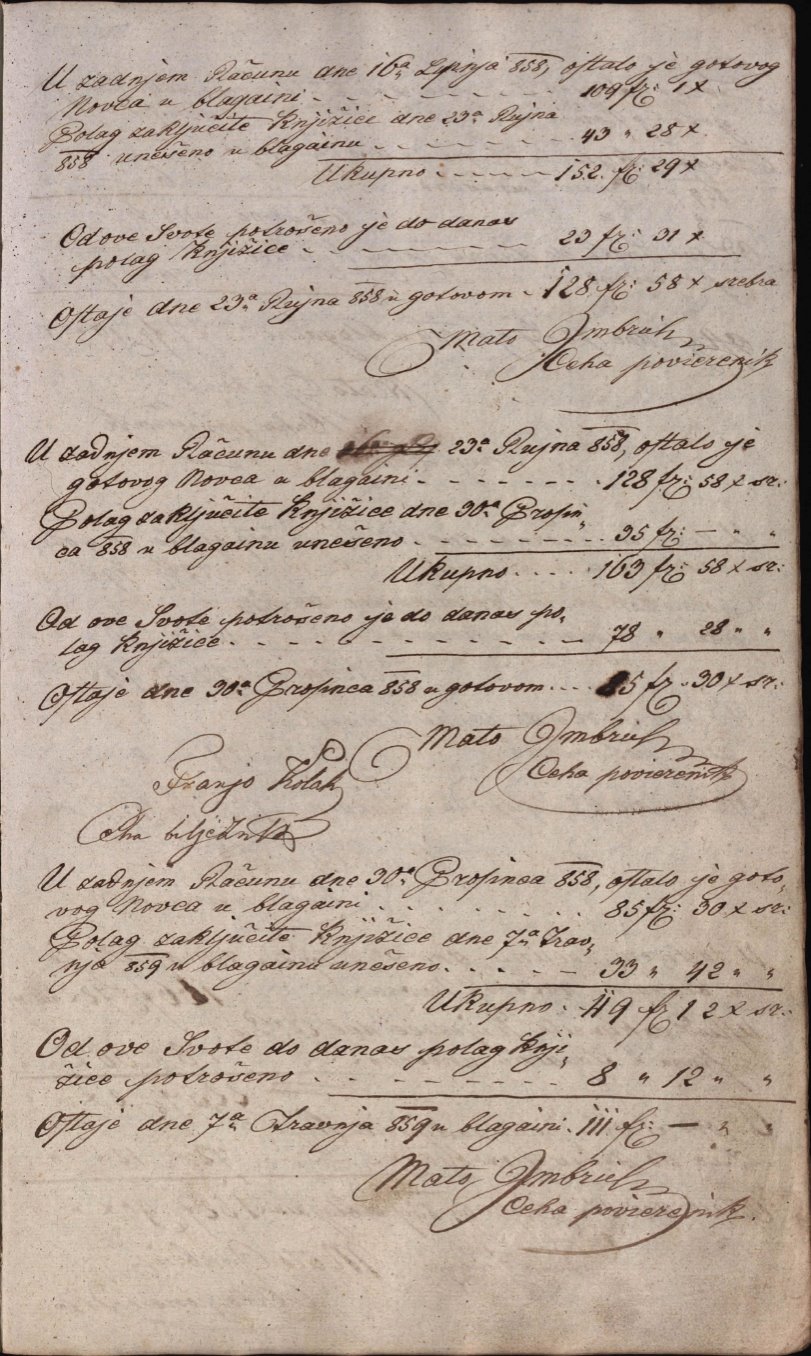 U zadnjem Računu dne 16ª Lipnja 858, ostalo je gotovog
Novca u blagaini - - - - - - - 109 fr: 1 x.
Polag zaključite Knjižice dne 23ª Rujna
858 unešeno u blagainu - - - - - - 43 " 28 x
Ukupno - - - - - 152 fr: 29 x
Od ove Svote potrošeno je do danas
polag Knjižice - - - - - - - 23 fr: 31 x
Ostaje dne 23ª Rujna 858 u gotovom - 128 fr: 58 x srebra
Mato Imbrich
Ceha povierenik
U zadnjem Računu dne 23ª Rujna 858, ostalo je
gotovog Novca u blagaini - - - - - - - 128 fr: 58 x sr:
Polag zaključite Knjižice dne 30ª Prosin„
ca 858 u blagainu unešeno - - - - - - - 35 fr: — " "
Ukupno - - - - 163 fr: 58 x sr:
Od ove Svote potrošeno je do danas po„
lag Knjižice - - - - - - - - - - 78 " 28 " "
Ostaje dne 30ª Prosinca 858 u gotovom - - - 85 fr - 30 x sr:
Mato Imbrich
Ceha povierenik
Franjo Kolah
bilježnik
U zadnjem Računu dne 30ª Prosinca 858, ostalo je goto„
vog Novca u blagaini - - - - - - - 85 fr: 30 x sr:
Polag zaključite Knjižice dne 7ª Trav„
nja 859 u blagainu unešeno - - - - - 33 " 42 " "
Ukupno - 119 fr 12 x sr:
Od ove Svote do danas polag Knji„
žice potrošeno - - - - - - - - 8 " 12 " "
Ostaje dne 7ª Travnja 859 u blagaini - 111 fr: — " "
Mato Imbrich
Ceha povierenik